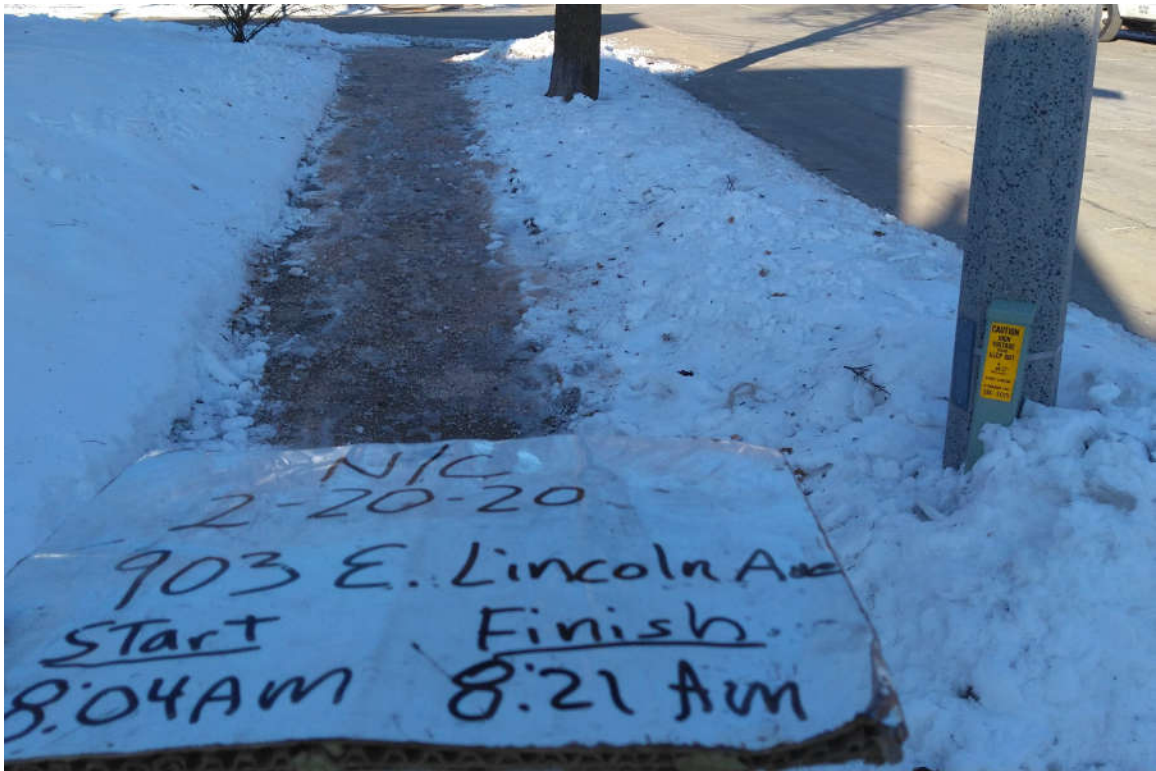 CAUTION
HIGH
VOLTAGE
KEEP OUT
N/C
2-20-20
903 E. Lincoln Ave
Start Finish
8:04 Am 8:21 Am